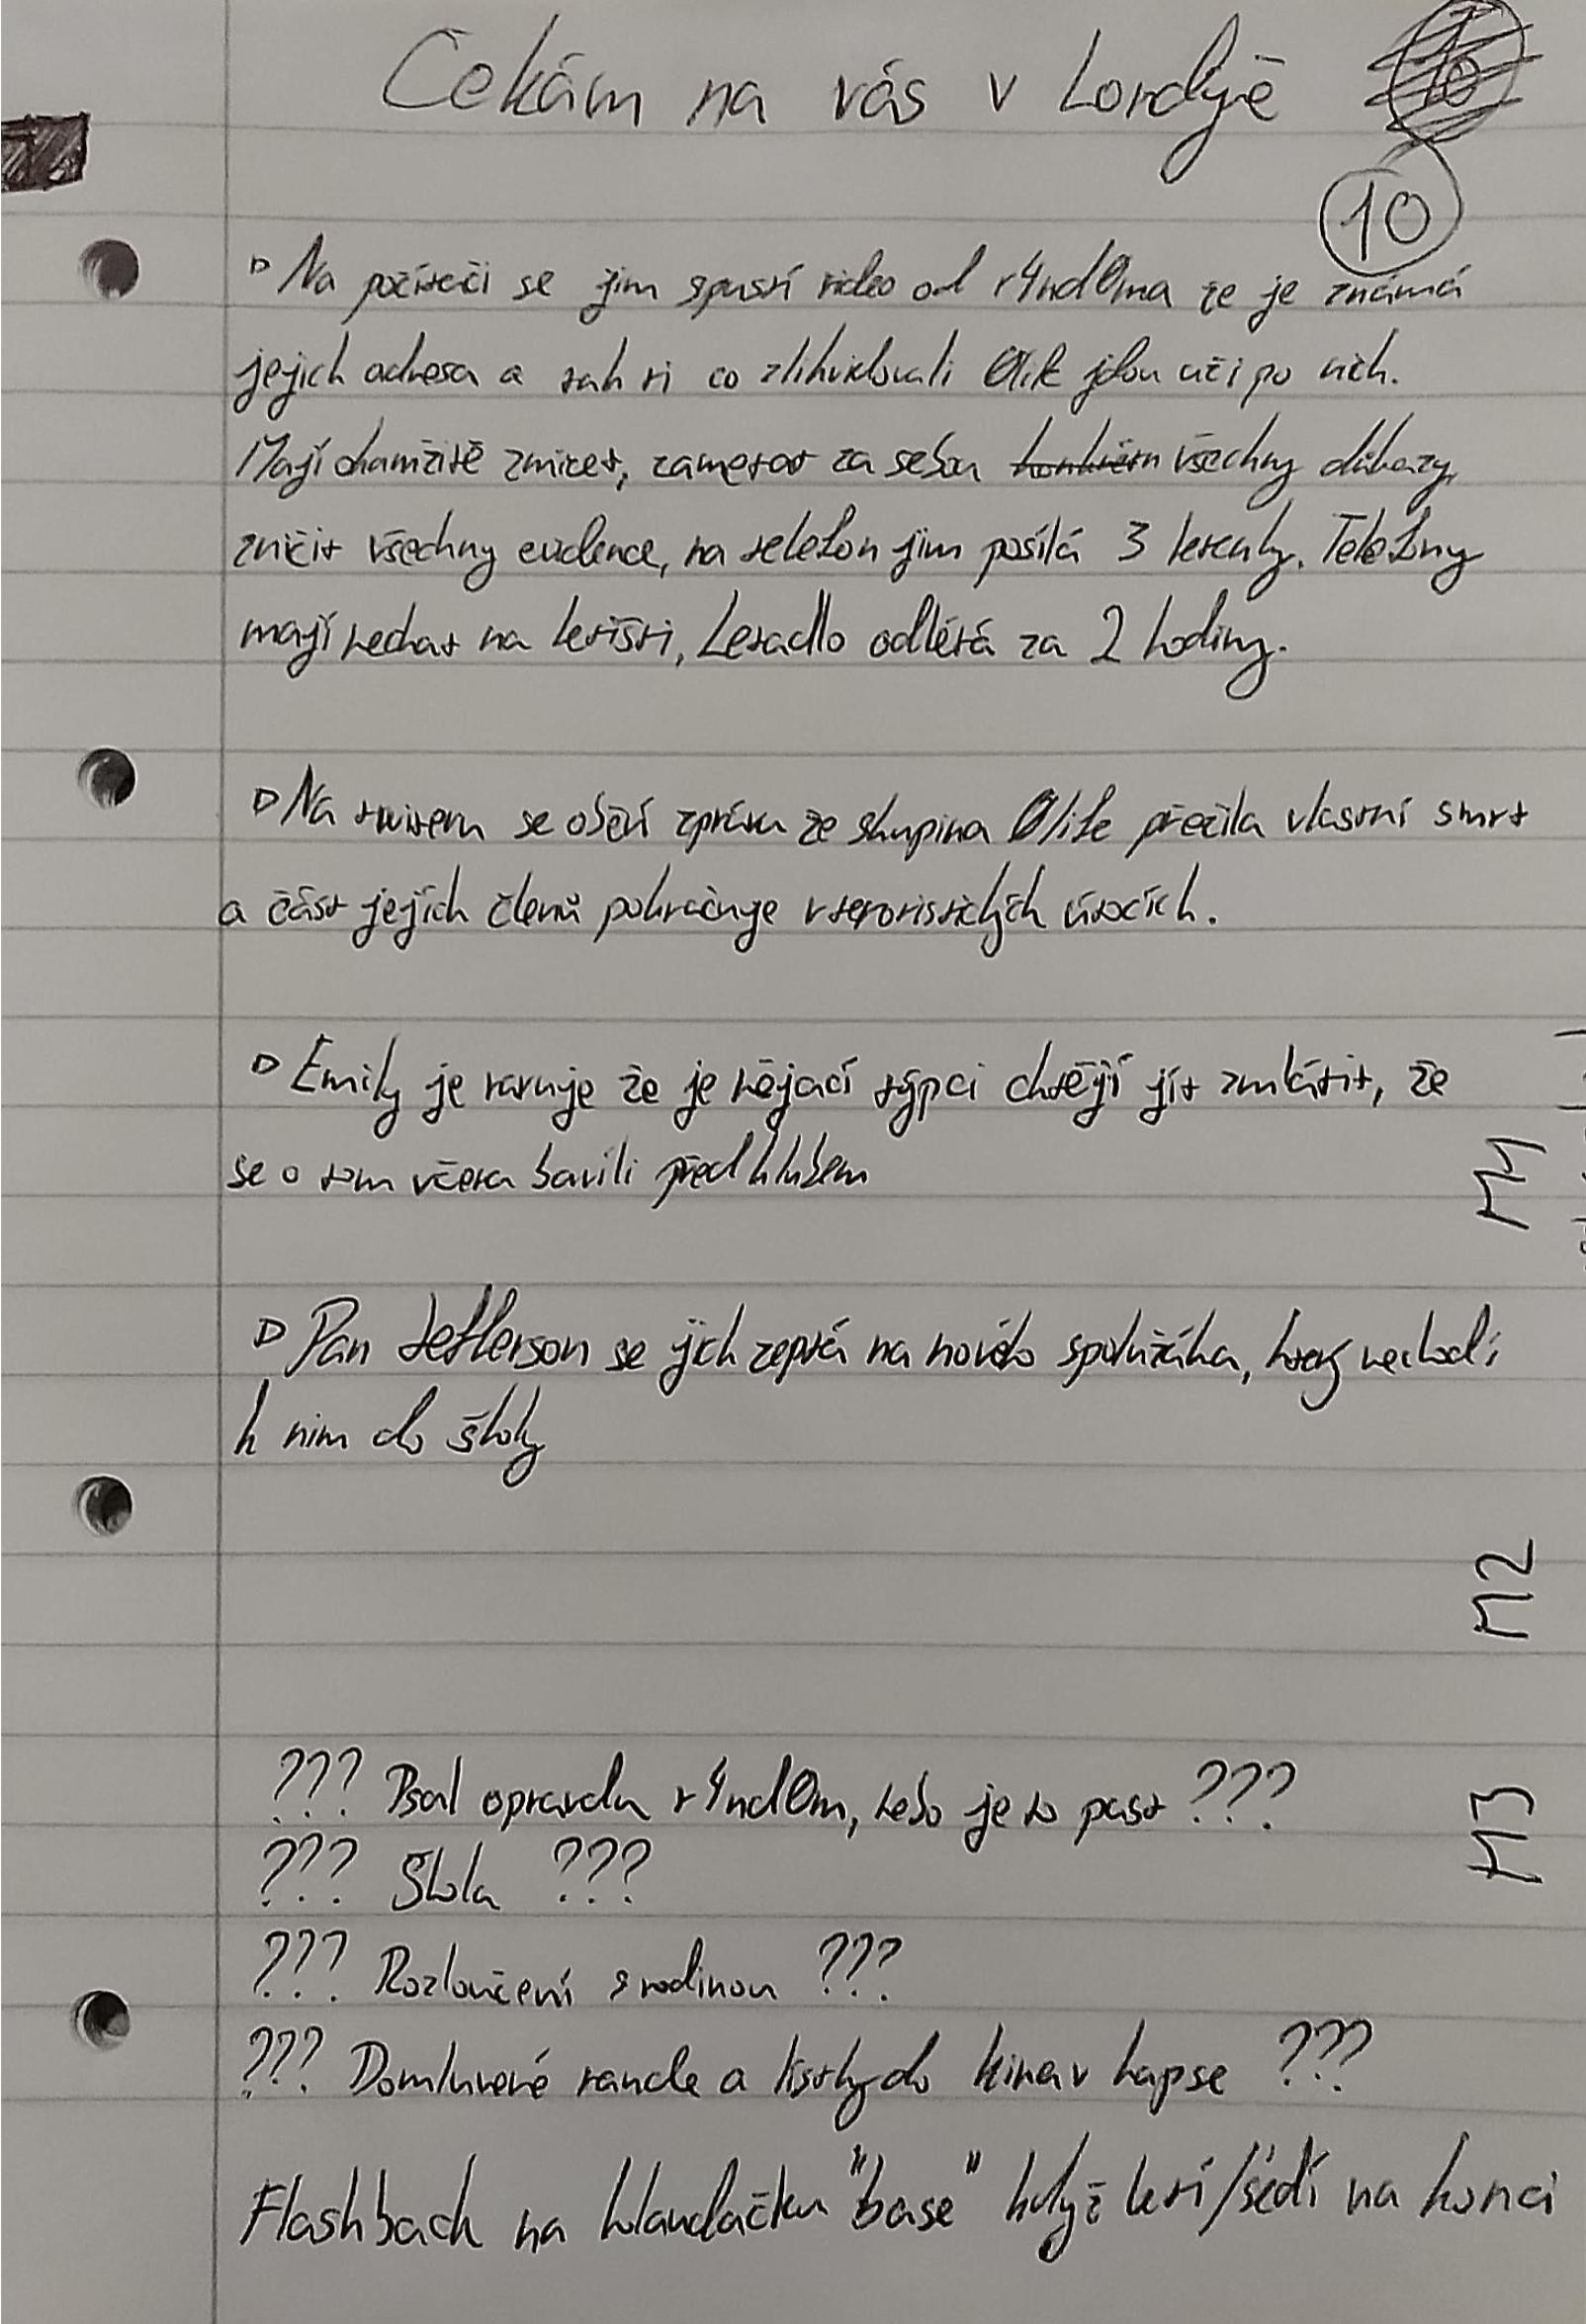 Čekám na vás v Londýně
10
▷ Na počítači se jim spustí video od r4nd0ma že je známá
jejich adresa a tak ti co zlikvidovali 0lit jdou teď po nich.
Mají okamžitě zmizet, zamotat za sebou všechny důkazy,
zničit všechny evidence, na telefon jim posílá 3 letenky. Telefony
mají nechat na letišti, Letadlo odlétá za 2 hodiny.
▷ Na twiteru se objeví zpráva že skupina 0lite přežila vlastní smrt
a část jejích členů pokračuje v teroristických útocích.
▷ Emily je varuje že je nějací týpci chtějí jít zmlátit, že
se o tom včera bavili před klubem
▷ Pan Jefferson se jich zeptá na nového spolužáka, který nechodí
k nim do školy
MM
M2
M3
??? Psal opravdu r4nd0m, nebo je to past ???
??? Škola ???
??? Rozloučení s rodinou ???
??? Domluvené rande a lístky do kina v kapse ???
Flashback na klandačku "base" když letí/sedí na konci